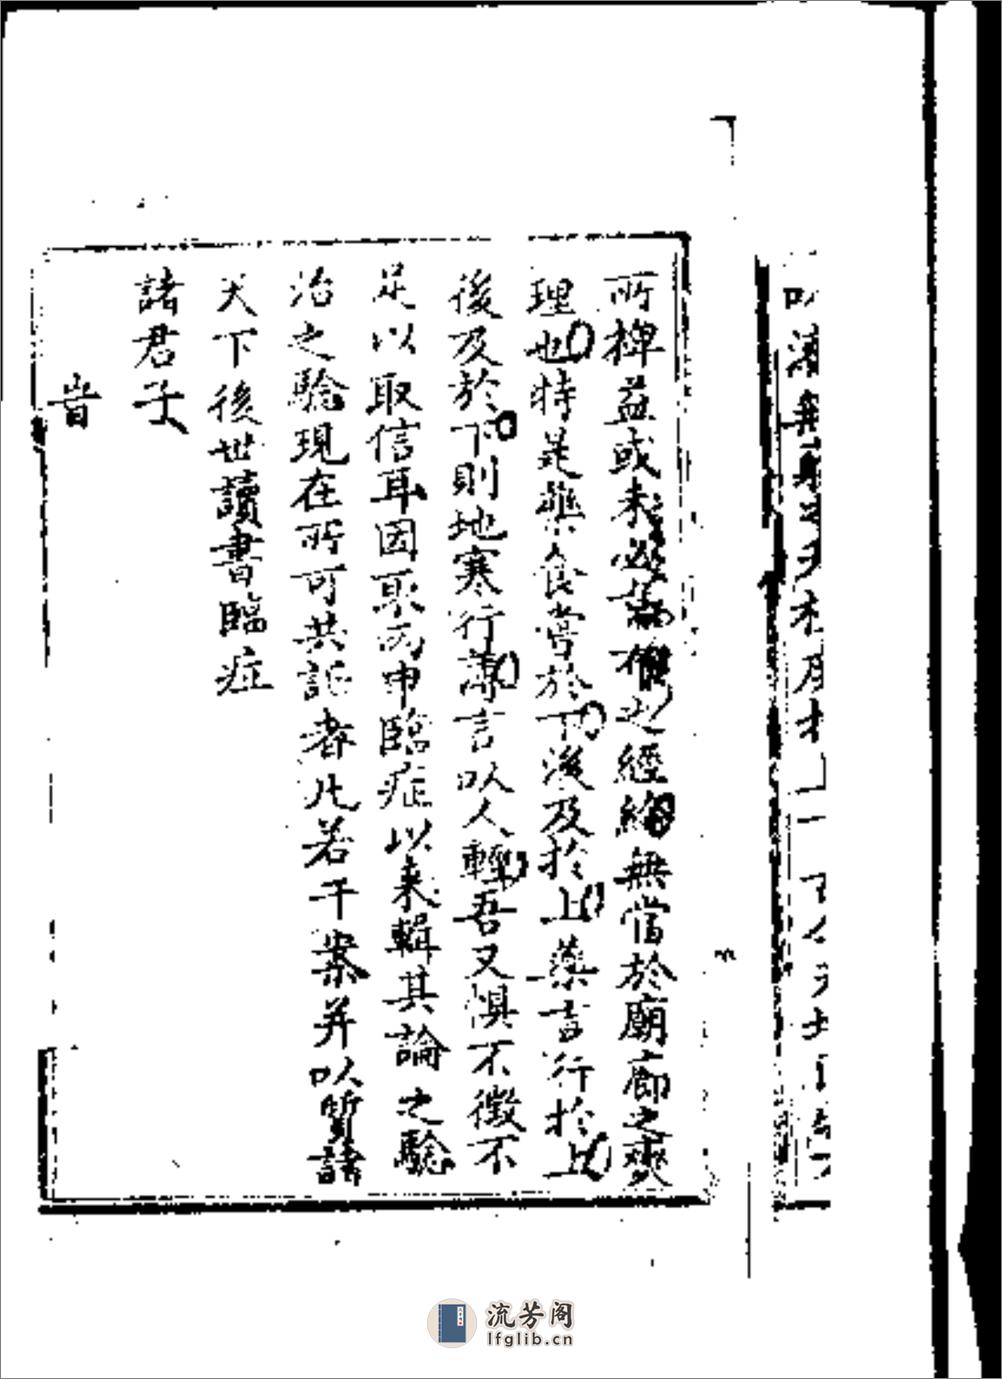 所裨益或未必無權之經綸無當於廟廊之爕
理也特是藥食嘗於下後及於上藥言行於上
後及於下則地寒行薄言以人輕吾又惧不徵不
足以取信耳因取丙申臨症以来輯其論之驗
治之驗現在所可共訴者凡若干案并以質諸
天下後世讀書臨症
諸君子
旹
流芳阁
lfglib.cn